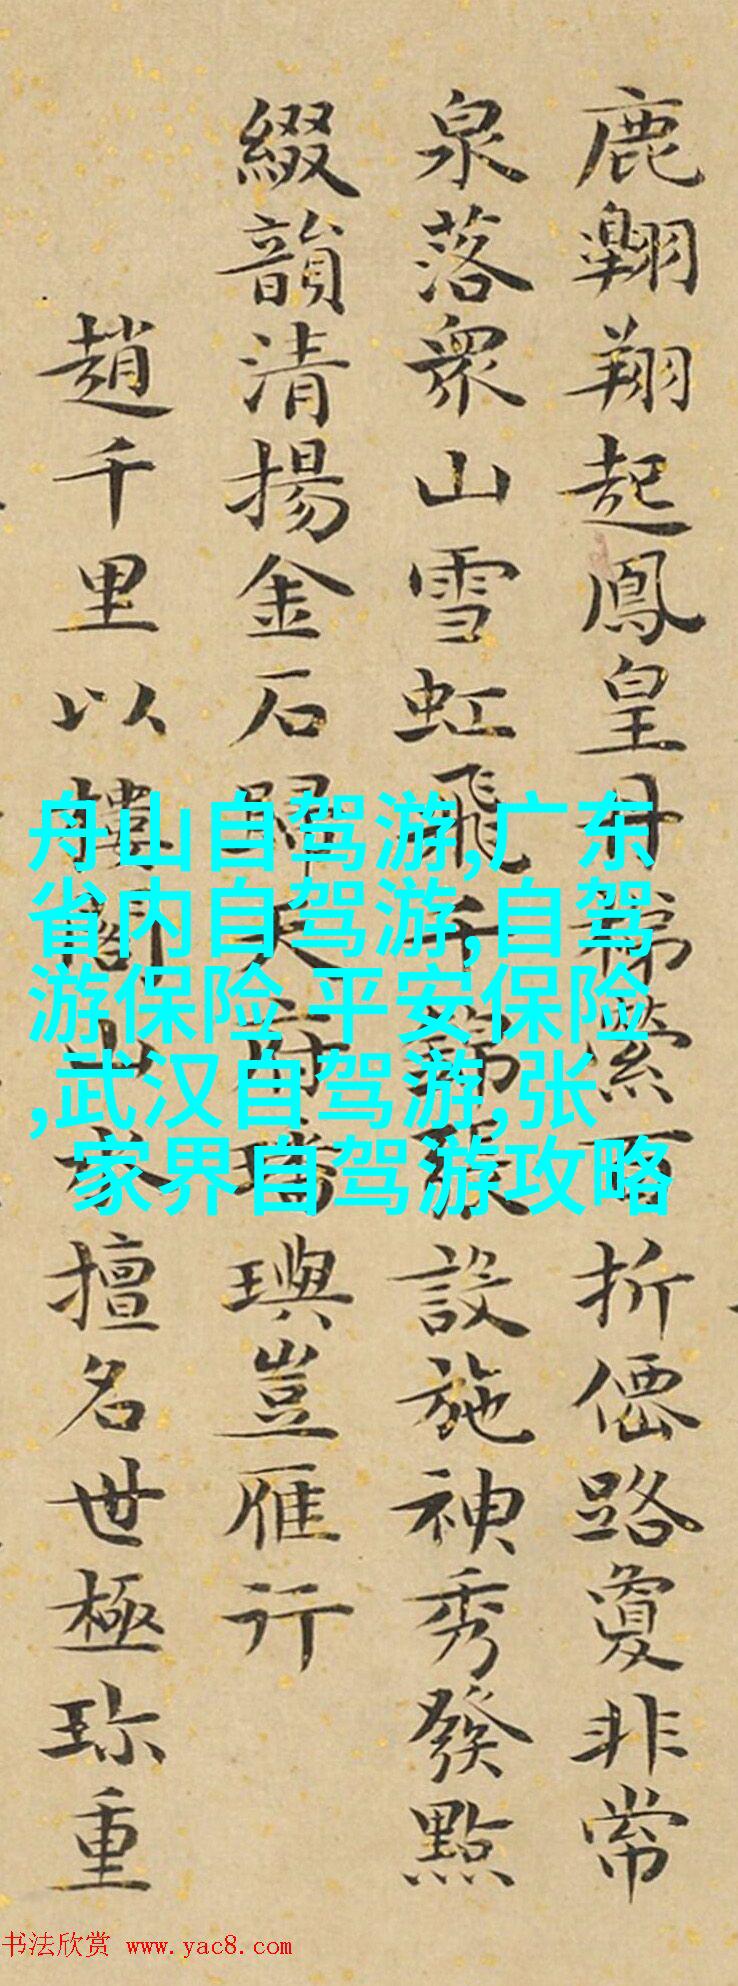 鹿翱翔起鳳皇丹梯縈百折僊路敻非常
泉落衆山雪虹飛千張設施神秀發點
綴韻清揚金石歸天府璠璵豈雁行
趙千里以樓閣山水擅名世極珍重
舟山自驾游,广东
省内自驾游,自驾
游保险 平安保险
,武汉自驾游,张
家界自驾游攻略
书法欣赏 www.yac8.com